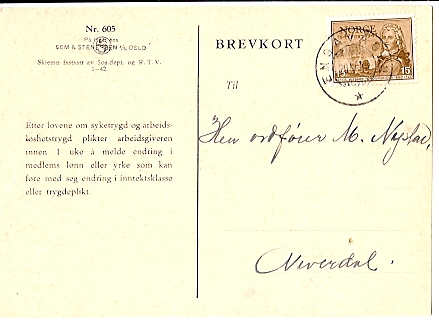 Nr. 605
SEM & STENERSEN A/S, OSLO
Skjema fastsatt av Sos.dept. og R. T. V.
1–42.
Etter lovene om syketrygd og arbeids-
løshetstrygd plikter arbeidsgiveren
innen 1 uke å melde endring i
medlems lønn eller yrke som kan
føre med seg endring i inntektsklasse
eller trygdeplikt.
BREVKORT
NORGE
15
Til
Herr ordfører M. Nystad,
Neverdal.